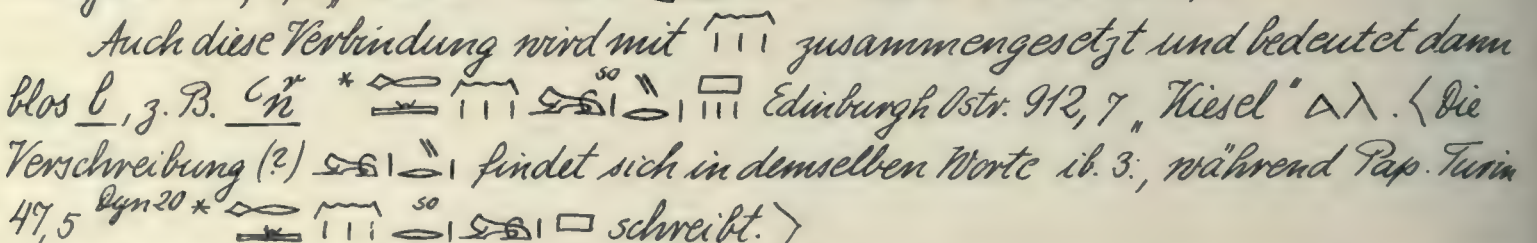 Auch diese Verbindung wird mit zusammengesetzt und bedeutet dann
blos l, z. B. * so Edinburgh Ostr. 912, 7 „Kiesel" ⲁⲗ. 〈Die
Verschreibung (?) findet sich in demselben Worte ib. 3:, während Pap. Turin
47,5 Dyn 20 * so schreibt.〉